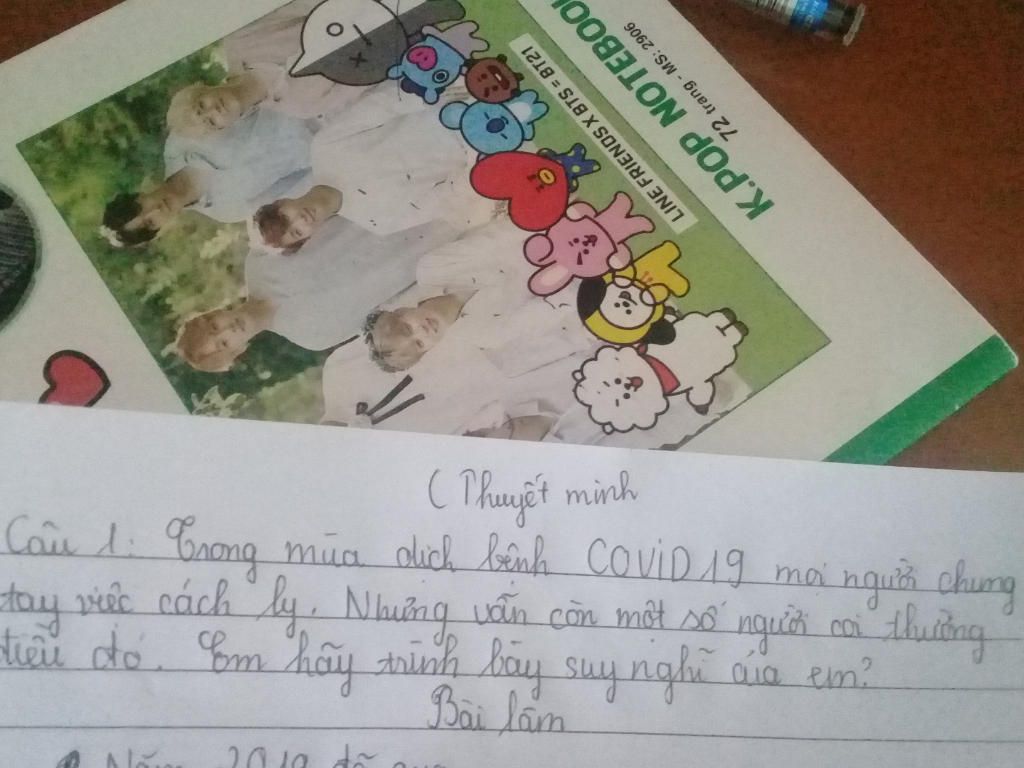 K.POP NOTEBOO
72 trang - MS: 2906
LINE FRIENDS X BTS = BT21
( Thuyết minh
Câu 1: Trong mùa dịch bệnh COVID 19 mọi người chung
tay việc cách ly. Nhưng vẫn còn một số người coi thường
điều đó. Em hãy trình bày suy nghĩ của em?
Bài làm
Năm 2019 đã